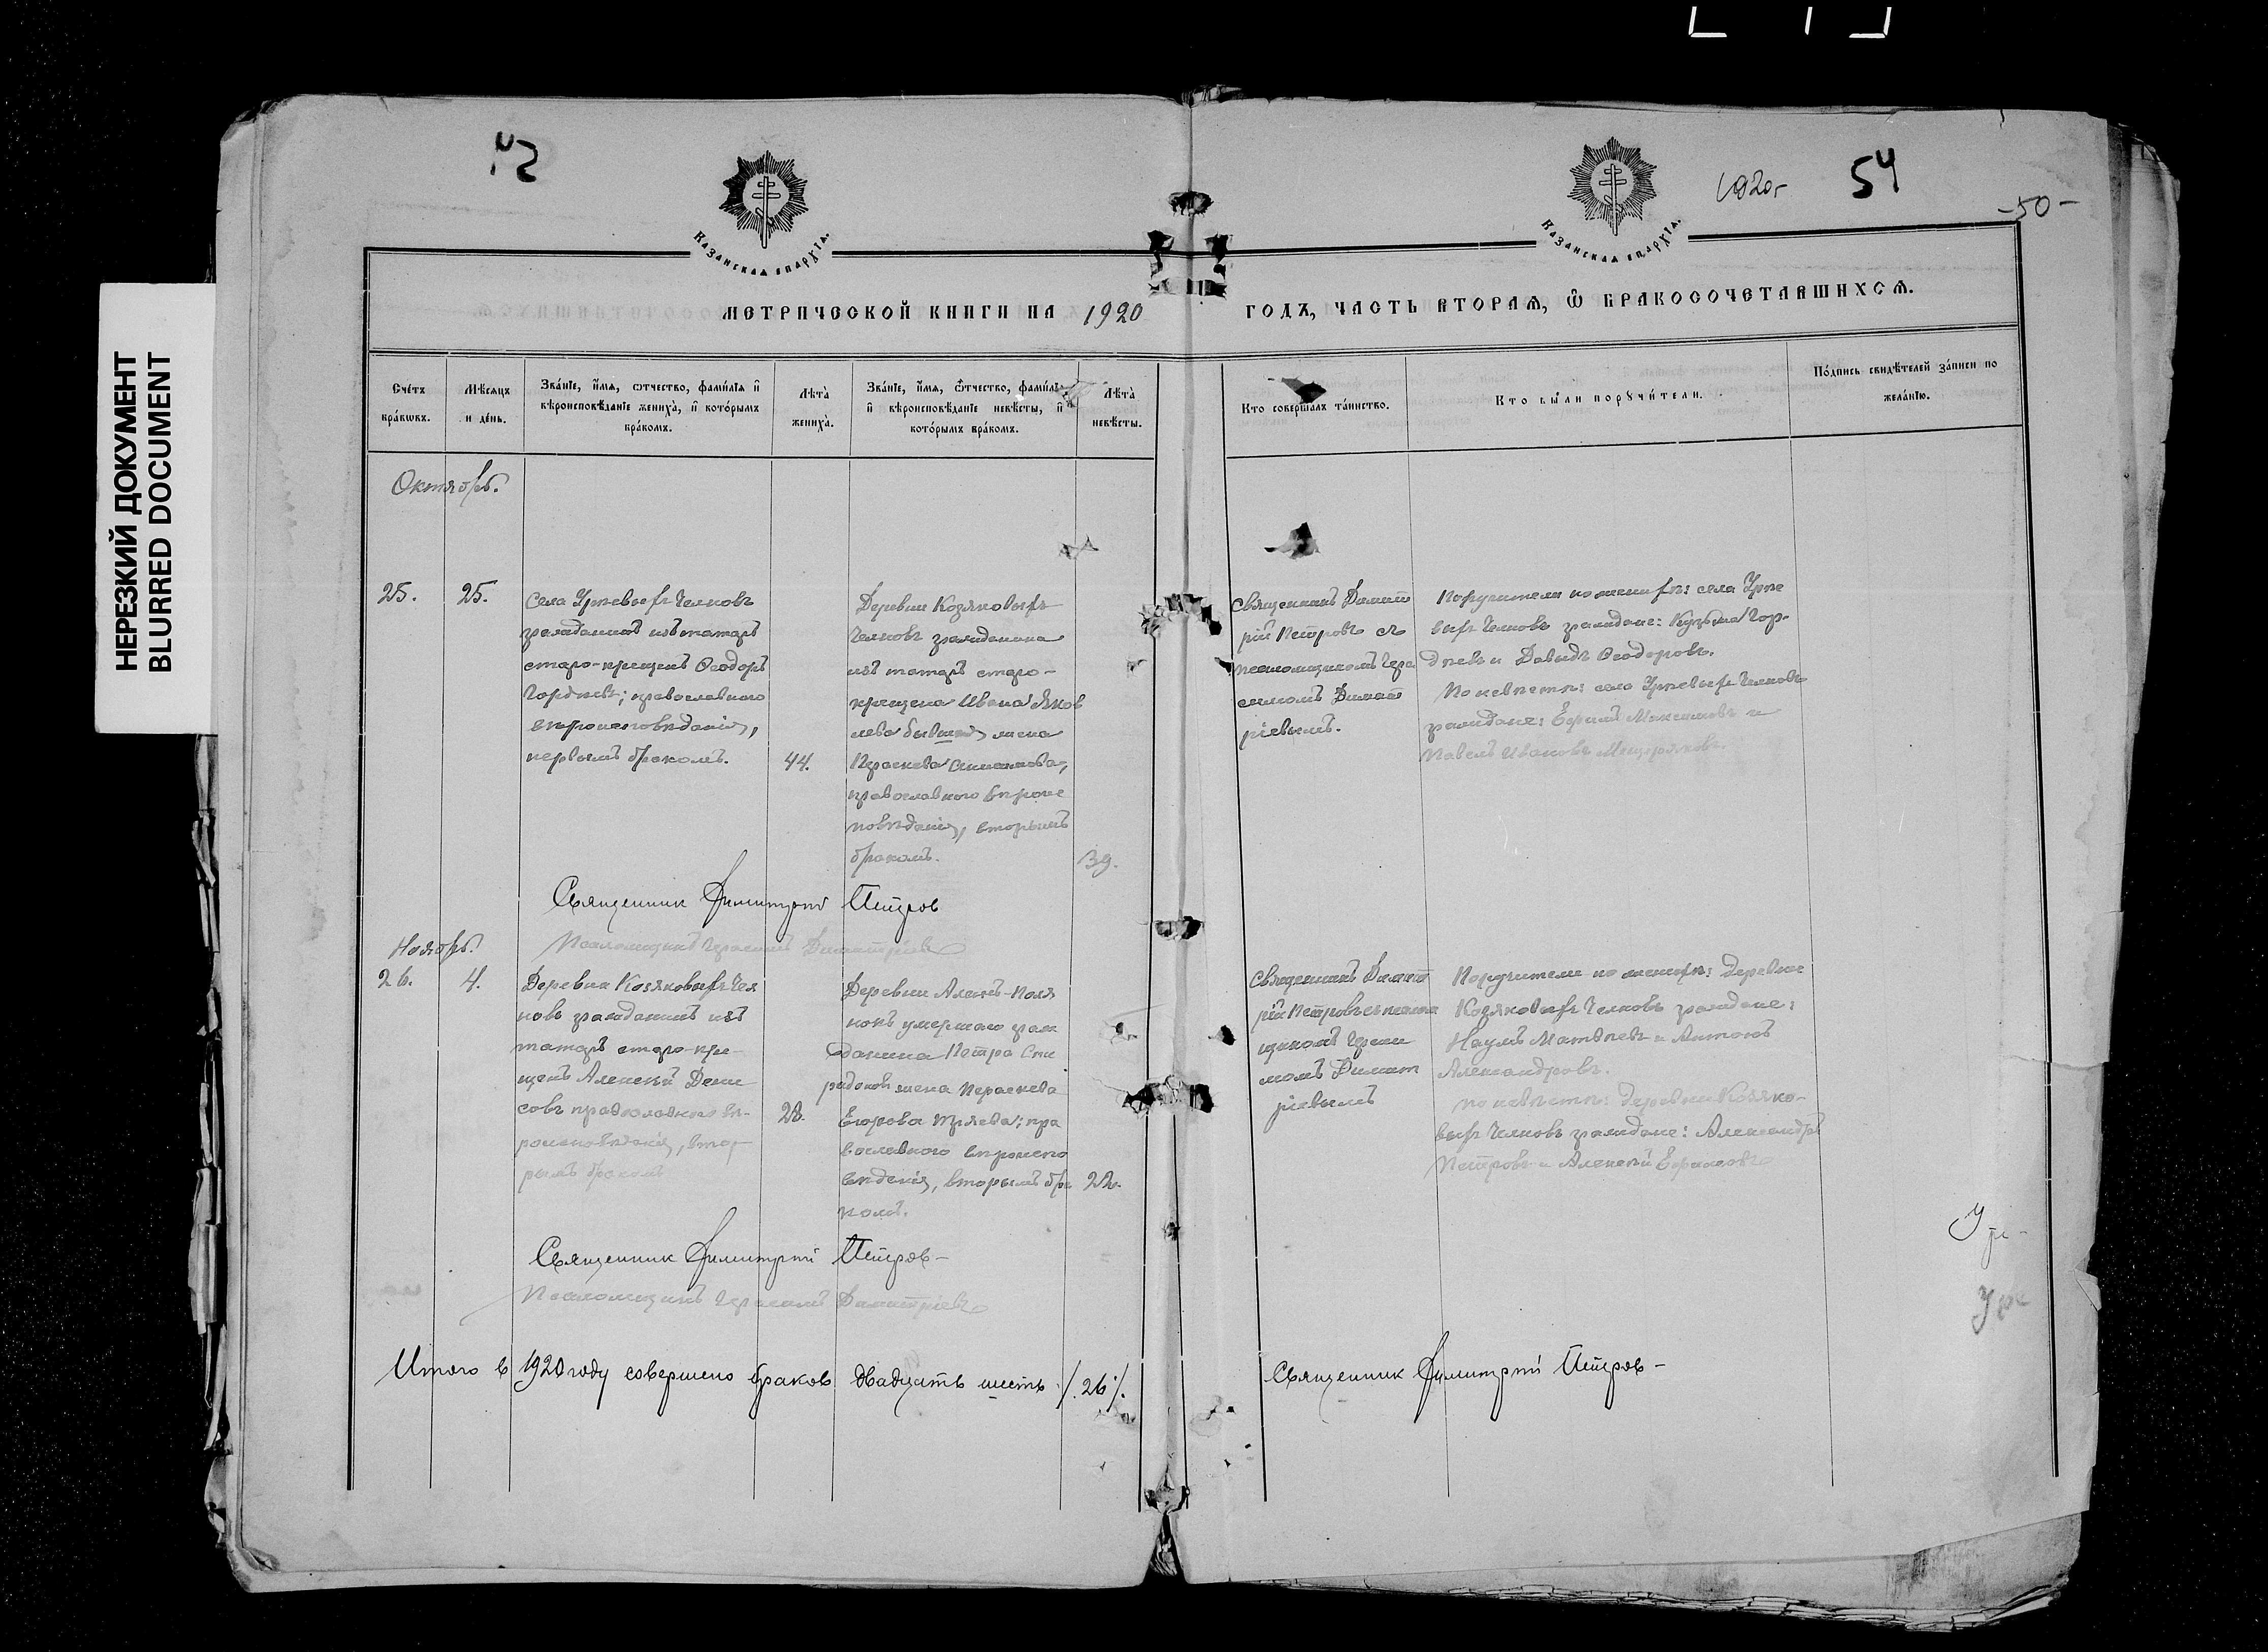 НЕРЕЗКИЙ ДОКУМЕНТ
BLURRED DOCUMENT
КАЗАНСКАѦ ЕПАРХІА.
КАЗАНСКАѦ ЕПАРХІА.
1920,-
54
-50-
МЕТРИЧЕСКОЙ КНИГИ НА 1920
ГОДЪ, ЧАСТЬ ВТОРАѦ, Ѽ БРАКОСОЧЕТАВШИХСѦ.
Сче́тъ бра́кѡвъ.
Мѣ́сяцъ и де́нь.
Зва́нїе, и҆́мя, ѻтчество, фами́лїя и҆
вѣроисповѣ́данїе жениха̀, и҆ кото́рымъ
бра́комъ.
Лѣта̀
жениха̀.
Зва́нїе, и҆́мя, ѻтчество, фами́лїя
и҆ вѣроисповѣ́данїе невѣ́сты, и҆
кото́рымъ бра́комъ.
Лѣта̀
невѣ́сты.
Кто соверша́лъ та́инство.
Кто бы́ли порꙋчи́тели.
По́дпись свидѣ́телей за́писи по
жела́нїю.
Октябрь.
25.
25.
Села Урѣевыхъ Челновъ
гражданинъ изъ татаръ
старо-крещенъ Ѳеодоръ
Гордѣевъ; православнаго
вѣроисповѣданія,
первымъ бракомъ.
44.
Деревни Козяковыхъ
Челновъ гражданина
изъ татаръ старо-
крещена Ивана Яков
лева бывшая жена
Параскева
православнаго вѣроис
повѣданія, вторымъ
бракомъ.
39.
Священникъ Димит
рій Петровъ съ
псаломщикомъ Гера
симомъ Димит
ріевымъ.
Поручители по женихѣ: села Урѣе
выхъ Челновъ граждане: Кузьма Гор-
дѣевъ и Давидъ Ѳеодоровъ.
По невѣстѣ: села Урѣевыхъ Челновъ
граждане: Ефимъ Максимовъ и
Павелъ Ивановъ Мещеряковъ.
Священник Димитрий Петров
Псаломщикъ Герасимъ Димитріевъ
Ноябрь.
26.
4.
Деревни Козяковыхъ Чел
новъ гражданинъ изъ
татаръ старо-кре-
щенъ Алексѣй Дени
совъ православнаго вѣ-
роисповѣданія, вто
рымъ бракомъ
28.
Деревни Алекс-Поля
нокъ умершаго граж
данина Петра Спи
ридонов жена Параскева
Егорова; пра
вославнаго вѣроиспо
вѣданія, вторымъ бра
комъ.
22.
Священникъ Димит
рій Петровъ съ псалом
щикомъ Гераси
момъ Димит
ріевымъ
Поручители по женихѣ: Деревни
Козяковыхъ Челновъ граждане:
Наумъ Матвѣевъ и Антонъ
Александровъ.
По невѣстѣ: Деревни Козяко-
выхъ Челновъ граждане: Александръ
Петровъ и Алексѣй Ефимовъ
Священник Димитрий Петров-
Псаломщикъ Герасимъ Димитріевъ
Итого в 1920 году совершено браков двадцать шесть /.26/.
Священник Димитрий Петров-